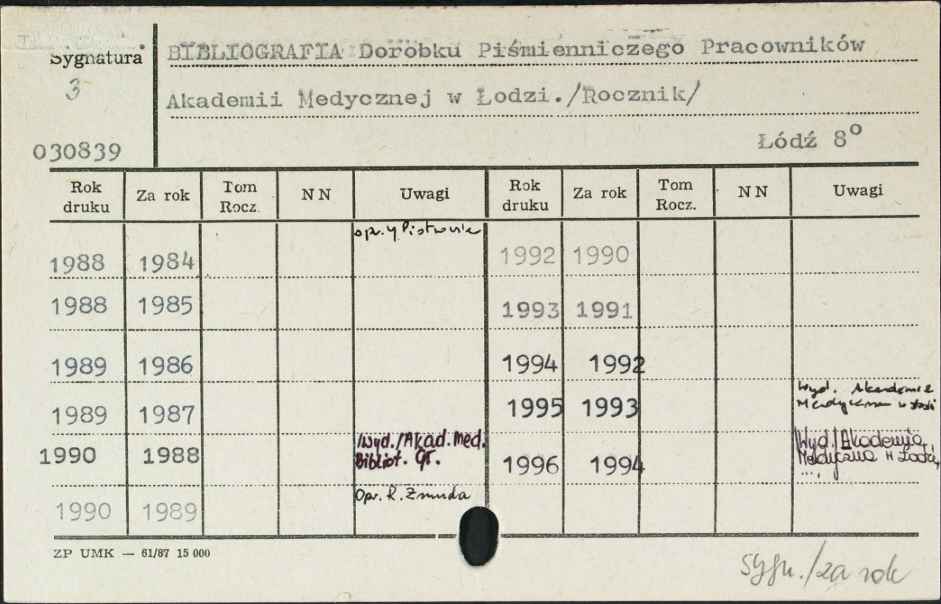 Sygnatura
3
030839
BIBLIOGRAFIA Dorobku Piśmienniczego Pracowników
Akademii Medycznej w Łodzi./Rocznik/
Łódź 8°
Rok druku Za rok Tom Rocz. NN Uwagi Rok druku Za rok Tom Rocz. NN Uwagi
1988 1984 opr. 1992 1990
1988 1985 1993 1991
1989 1986 1994 1992
1989 1987 1995 1993 Wyd. Akademia Medyczna w Łodzi
1990 1988 /Wyd./Akad. Med. Bibliot. Gł. 1996 1994 /Wyd./Akademia Medyczna w Łodzi,
1990 1989 Opr. R. Żmuda
ZP UMK — 61/87 15 000
sygn./za rok